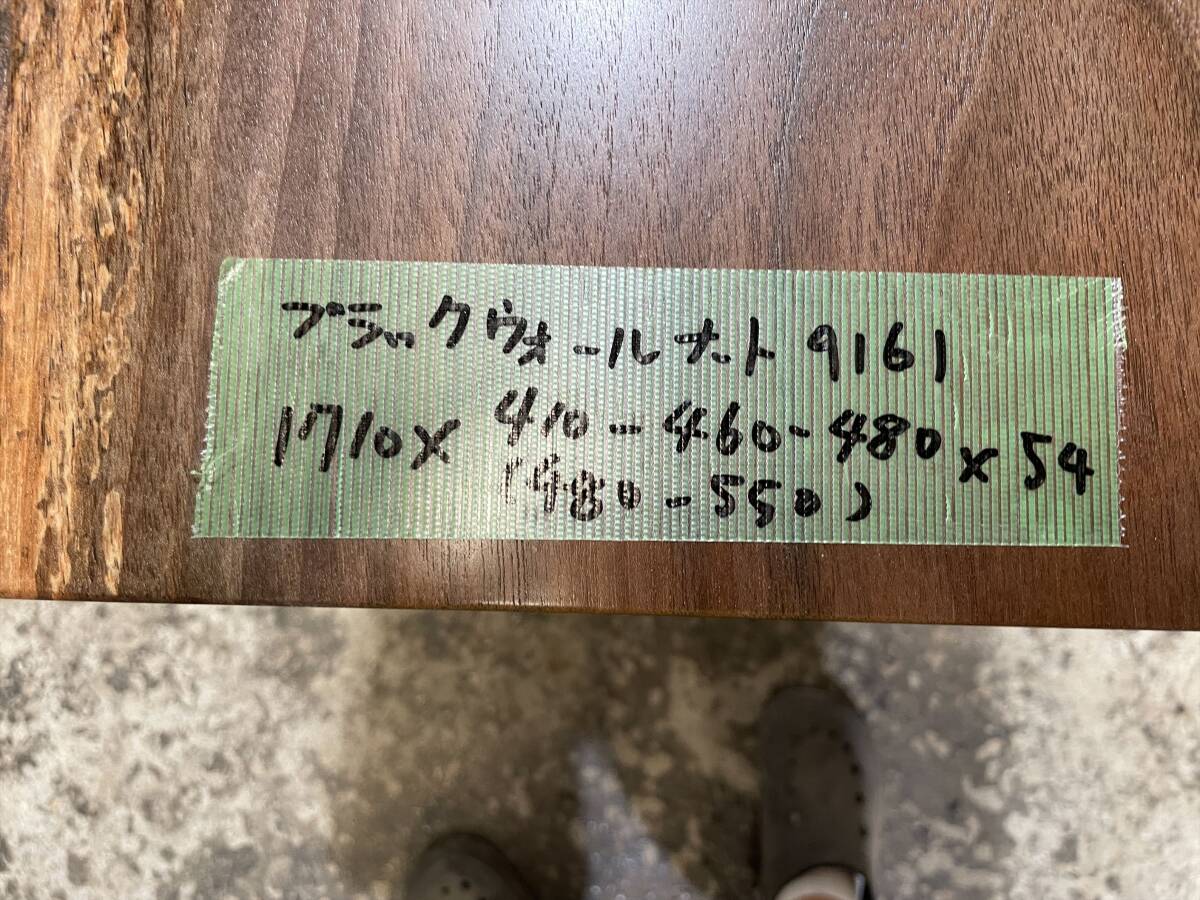 ブラックウォールナット 9161
1710× 410-460-480 ×54
(480-550)